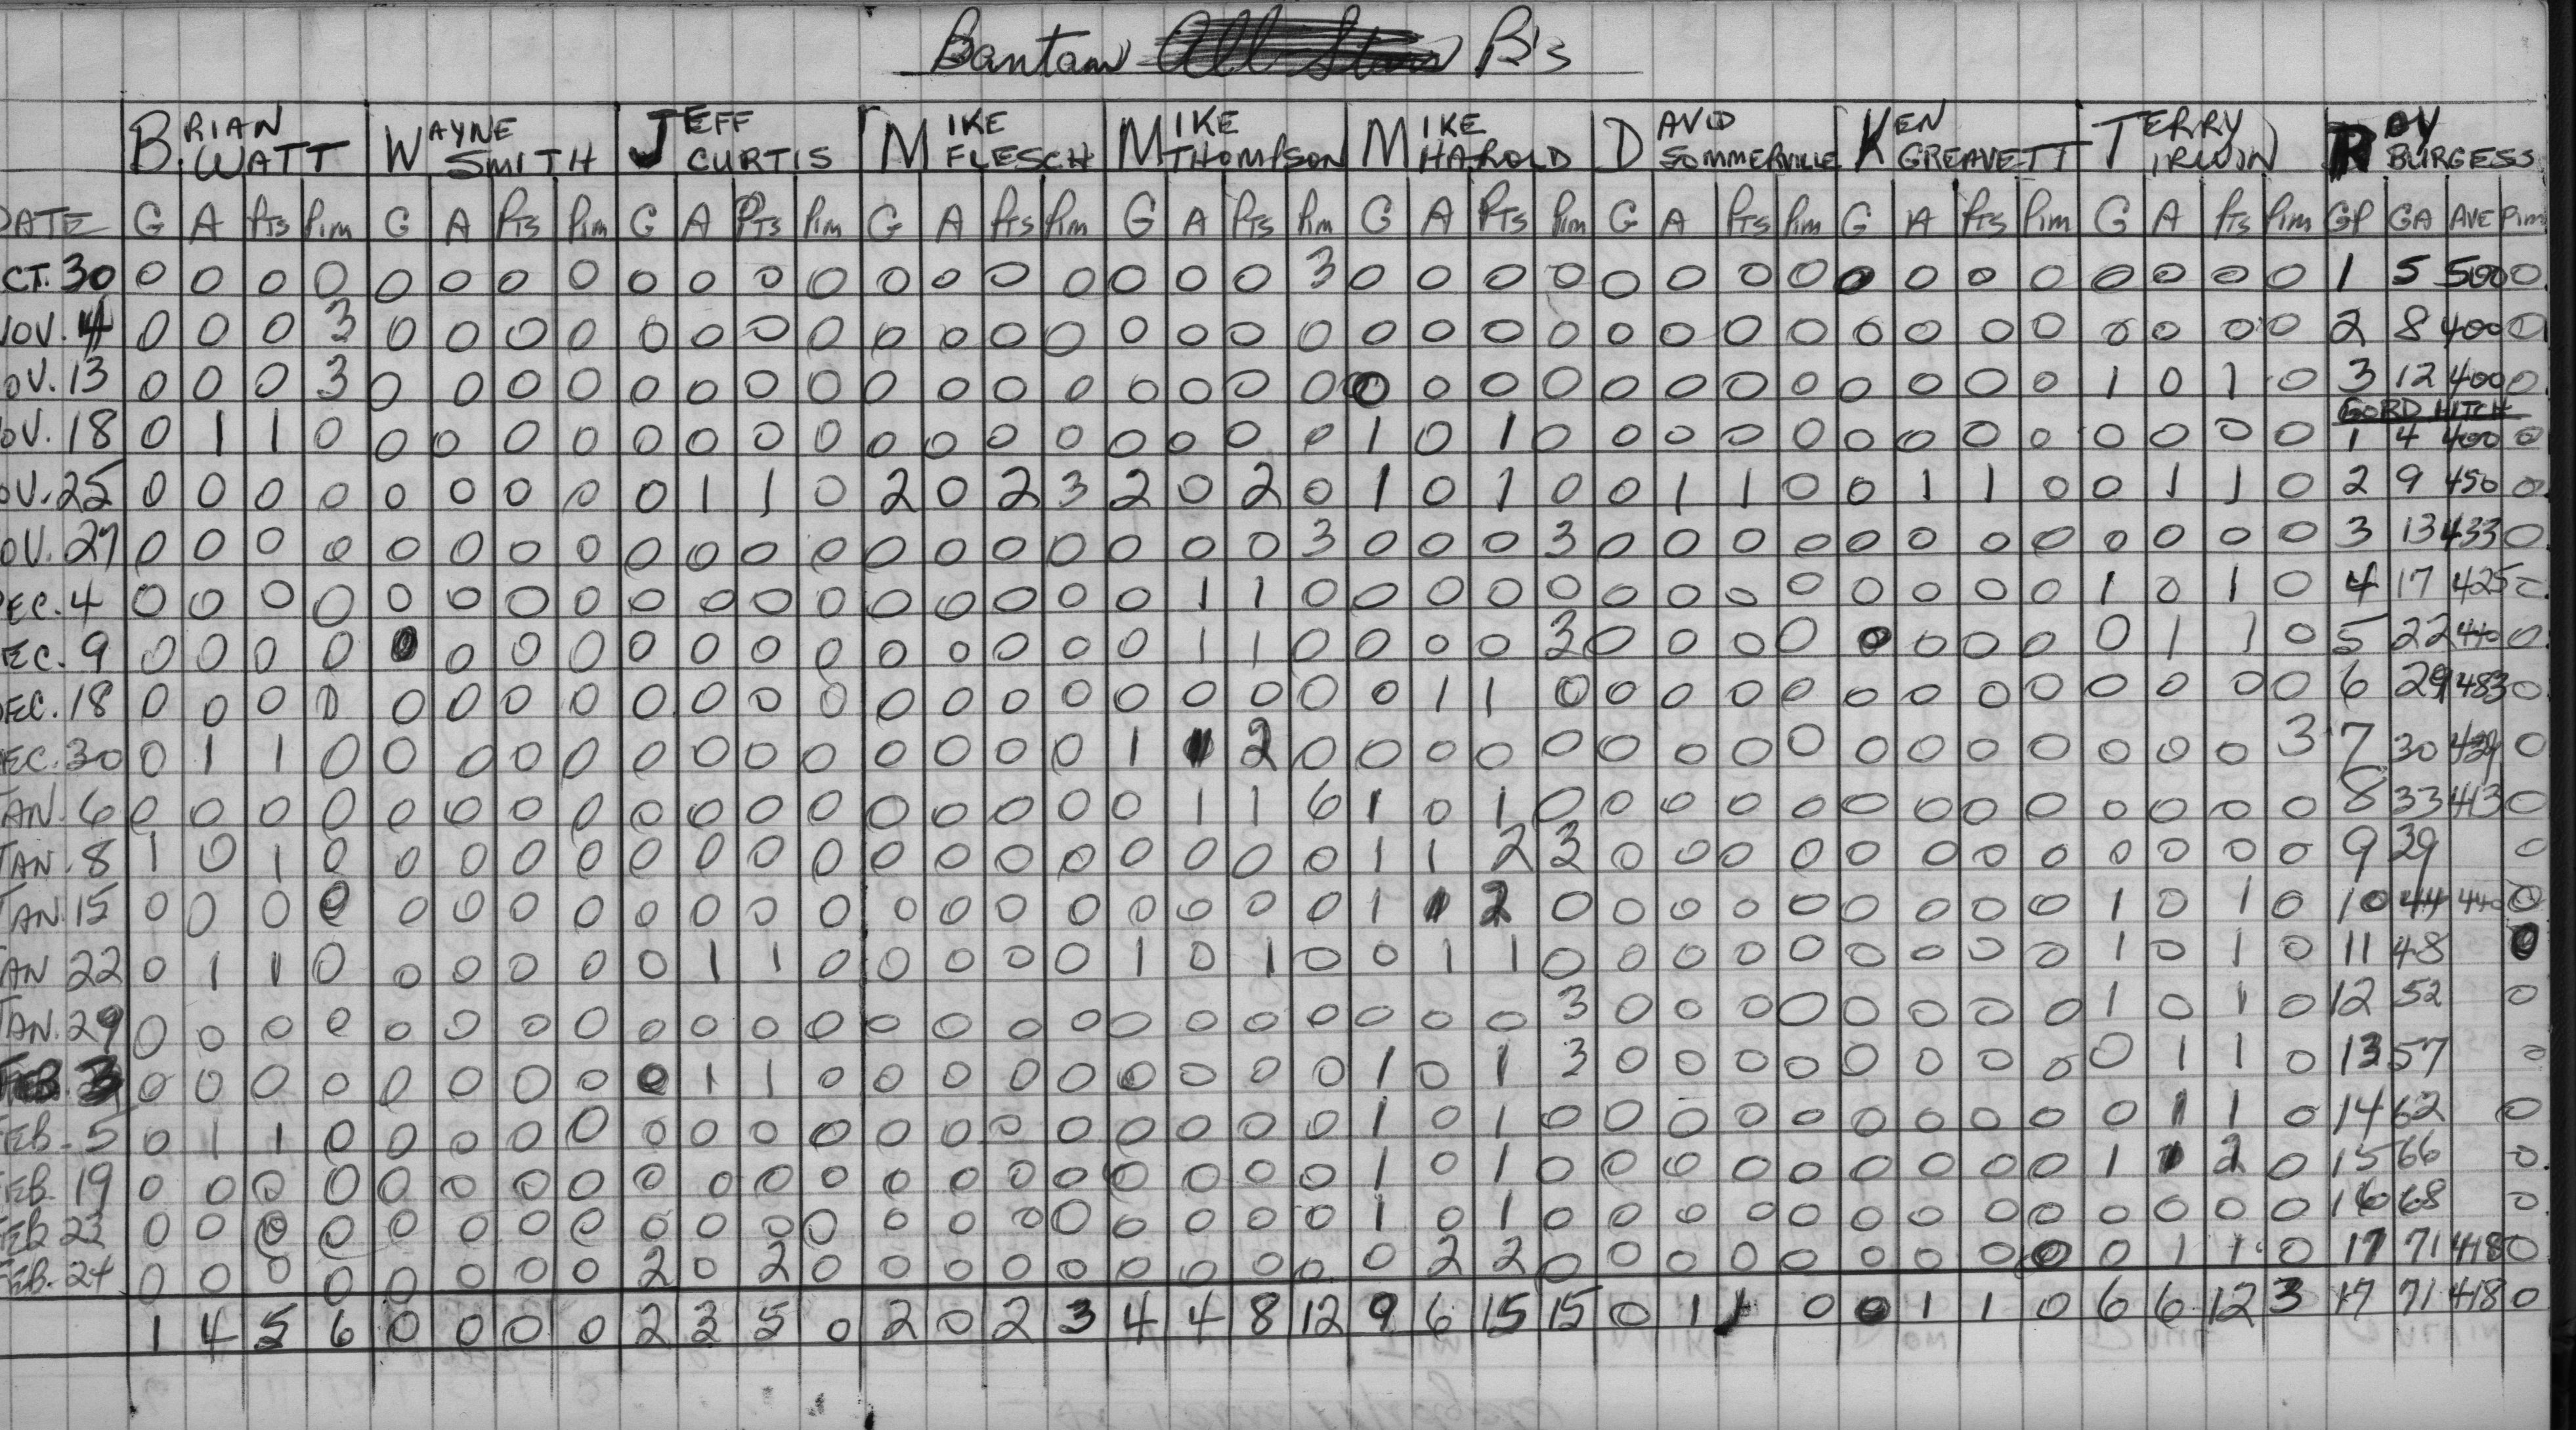 Bantam B's
BRIAN WATT WAYNE SMITH JEFF CURTIS MIKE FLESCH MIKE THOMPSON MIKE HAROLD DAVID SOMMERVILLE KEN GREAVETT TERRY IRWIN ROY BURGESS
DATE G A Pts Pim G A Pts Pim G A Pts Pim G A Pts Pim G A Pts Pim G A Pts Pim G A Pts Pim G A Pts Pim G A Pts Pim GP GA AVE Pim
CT. 30 0 0 0 0 0 0 0 0 0 0 0 0 0 0 0 0 0 0 0 3 0 0 0 0 0 0 0 0 0 0 0 0 0 0 0 0 1 5 500 0
OV. 4 0 0 0 3 0 0 0 0 0 0 0 0 0 0 0 0 0 0 0 0 0 0 0 0 0 0 0 0 0 0 0 0 0 0 0 0 2 8 400 0
OV. 13 0 0 0 3 0 0 0 0 0 0 0 0 0 0 0 0 0 0 0 0 0 0 0 0 0 0 0 0 0 0 0 0 1 0 1 0 3 12 400 0
GORD HITCH
OV. 18 0 1 1 0 0 0 0 0 0 0 0 0 0 0 0 0 0 0 0 0 1 0 1 0 0 0 0 0 0 0 0 0 0 0 0 0 1 4 400 0
OV. 25 0 0 0 0 0 0 0 0 0 1 1 0 2 0 2 3 2 0 2 0 1 0 1 0 0 1 1 0 0 1 1 0 0 1 1 0 2 9 450 0
OV. 27 0 0 0 0 0 0 0 0 0 0 0 0 0 0 0 0 0 0 0 3 0 0 0 3 0 0 0 0 0 0 0 0 0 0 0 0 3 13 433 0
EC. 4 0 0 0 0 0 0 0 0 0 0 0 0 0 0 0 0 0 1 1 0 0 0 0 0 0 0 0 0 0 0 0 0 1 0 1 0 4 17 425 0
EC. 9 0 0 0 0 0 0 0 0 0 0 0 0 0 0 0 0 0 1 1 0 0 0 0 3 0 0 0 0 0 0 0 0 0 1 1 0 5 22 440 0
EC. 18 0 0 0 0 0 0 0 0 0 0 0 0 0 0 0 0 0 0 0 0 0 1 1 0 0 0 0 0 0 0 0 0 0 0 0 0 6 29 483 0
EC. 30 0 1 1 0 0 0 0 0 0 0 0 0 0 0 0 0 1 1 2 0 0 0 0 0 0 0 0 0 0 0 0 0 0 0 0 3 7 30 429 0
JAN. 6 0 0 0 0 0 0 0 0 0 0 0 0 0 0 0 0 0 1 1 6 1 0 1 0 0 0 0 0 0 0 0 0 0 0 0 0 8 33 413 0
JAN. 8 1 0 1 0 0 0 0 0 0 0 0 0 0 0 0 0 0 0 0 0 1 1 2 3 0 0 0 0 0 0 0 0 0 0 0 0 9 39 0
JAN. 15 0 0 0 0 0 0 0 0 0 0 0 0 0 0 0 0 0 0 0 0 1 1 2 0 0 0 0 0 0 0 0 0 1 0 1 0 10 44 440 0
JAN 22 0 1 1 0 0 0 0 0 0 1 1 0 0 0 0 0 1 0 1 0 0 1 1 0 0 0 0 0 0 0 0 0 1 0 1 0 11 48 0
JAN. 29 0 0 0 0 0 0 0 0 0 0 0 0 0 0 0 0 0 0 0 0 0 0 0 3 0 0 0 0 0 0 0 0 1 0 1 0 12 52 0
FEB. 3 0 0 0 0 0 0 0 0 0 1 1 0 0 0 0 0 0 0 0 0 1 0 1 3 0 0 0 0 0 0 0 0 0 1 1 0 13 57 0
FEB. 5 0 1 1 0 0 0 0 0 0 0 0 0 0 0 0 0 0 0 0 0 1 0 1 0 0 0 0 0 0 0 0 0 0 1 1 0 14 62 0
FEB. 19 0 0 0 0 0 0 0 0 0 0 0 0 0 0 0 0 0 0 0 0 1 0 1 0 0 0 0 0 0 0 0 0 1 1 2 0 15 66 0
FEB 23 0 0 0 0 0 0 0 0 0 0 0 0 0 0 0 0 0 0 0 0 1 0 1 0 0 0 0 0 0 0 0 0 0 0 0 0 16 68 0
FEB. 24 0 0 0 0 0 0 0 0 2 0 2 0 0 0 0 0 0 0 0 0 0 2 2 0 0 0 0 0 0 0 0 0 0 1 1 0 17 71 418 0
1 4 5 6 0 0 0 0 2 3 5 0 2 0 2 3 4 4 8 12 9 6 15 15 0 1 1 0 0 1 1 0 6 6 12 3 17 71 418 0